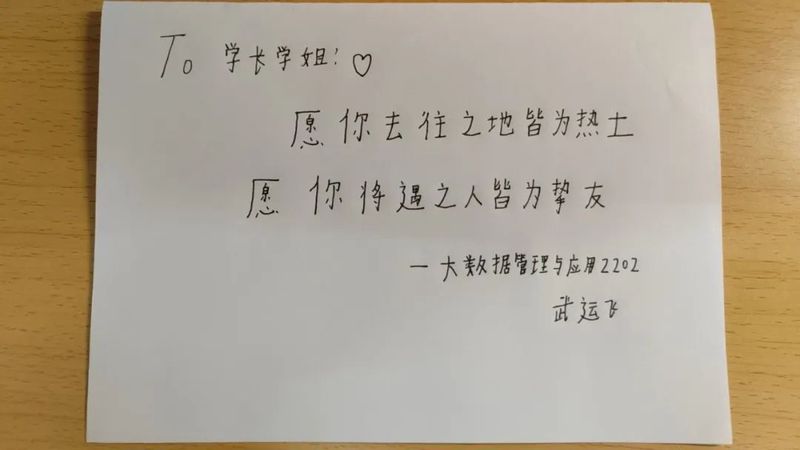 To 学长学姐！♡
愿你去往之地皆为热土
愿你将遇之人皆为挚友
一大数据管理与应用2202
武运飞